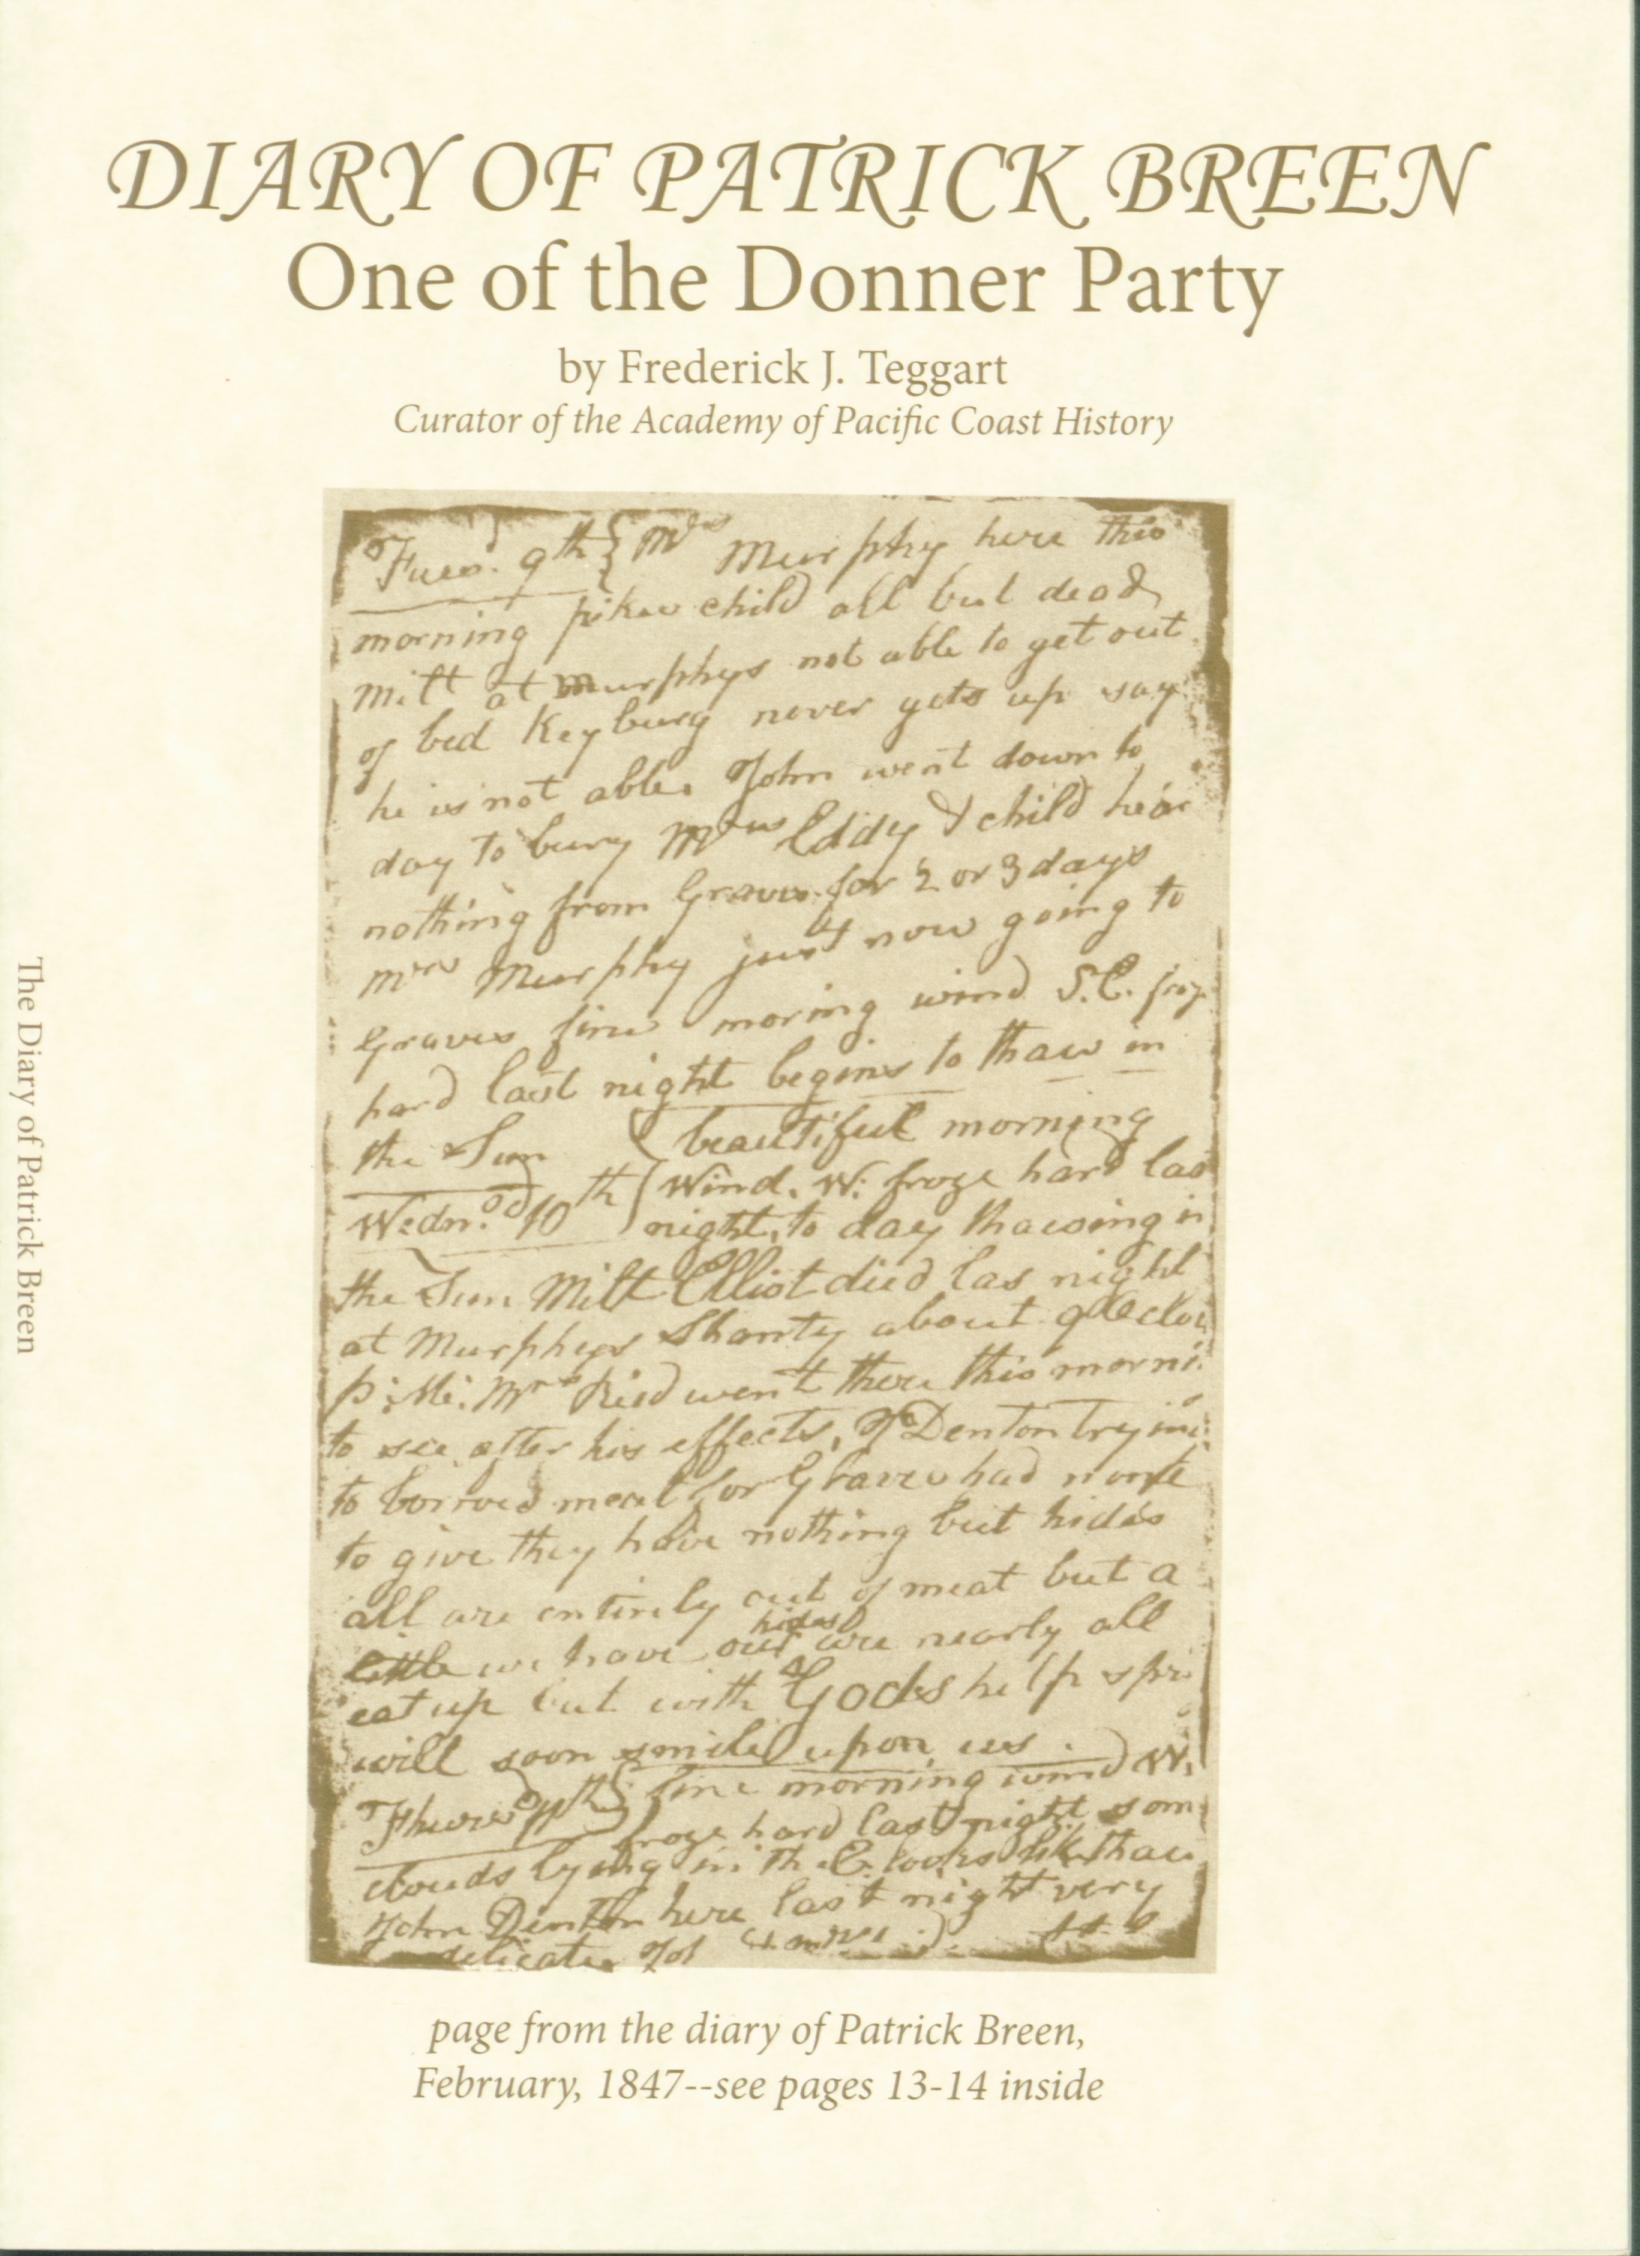 DIARY OF PATRICK BREEN
One of the Donner Party
by Frederick J. Teggart
Curator of the Academy of Pacific Coast History
Tues. 9th Mrs Murphy here this
morning pikes child all but dead
Milt at Murphys not able to get out
of bed Keyburg never gets up say
he is not able. John went down to
day to bury Mrs Eddy & child hear
nothing from Graves for 2 or 3 days
Mrs Murphy just now going to
Graves fine moring wind S.E. froze
hard last night begins to thaw in
the Sun
beautiful morning
Wedn.d 10th Wind. W: froze hard las
night, to day thawing in
the Sun Milt Elliot died las night
at Murphys Shanty about 9 Oclo
P:M: Mrs Reid went there this morni
to see after his effects, J Denton trying
to borrow meat for Graves had none
to give they have nothing but hides
all are entirely out of meat but a
little we have our hides are nearly all
eat up but with Gods help spri
will soon smile upon us.
Thurs 11th fine morning wind W.
froze hard last night som
clouds lying in the E. looks like thaw
John Denton here last night very
delicate.
page from the diary of Patrick Breen,
February, 1847--see pages 13-14 inside
The Diary of Patrick Breen